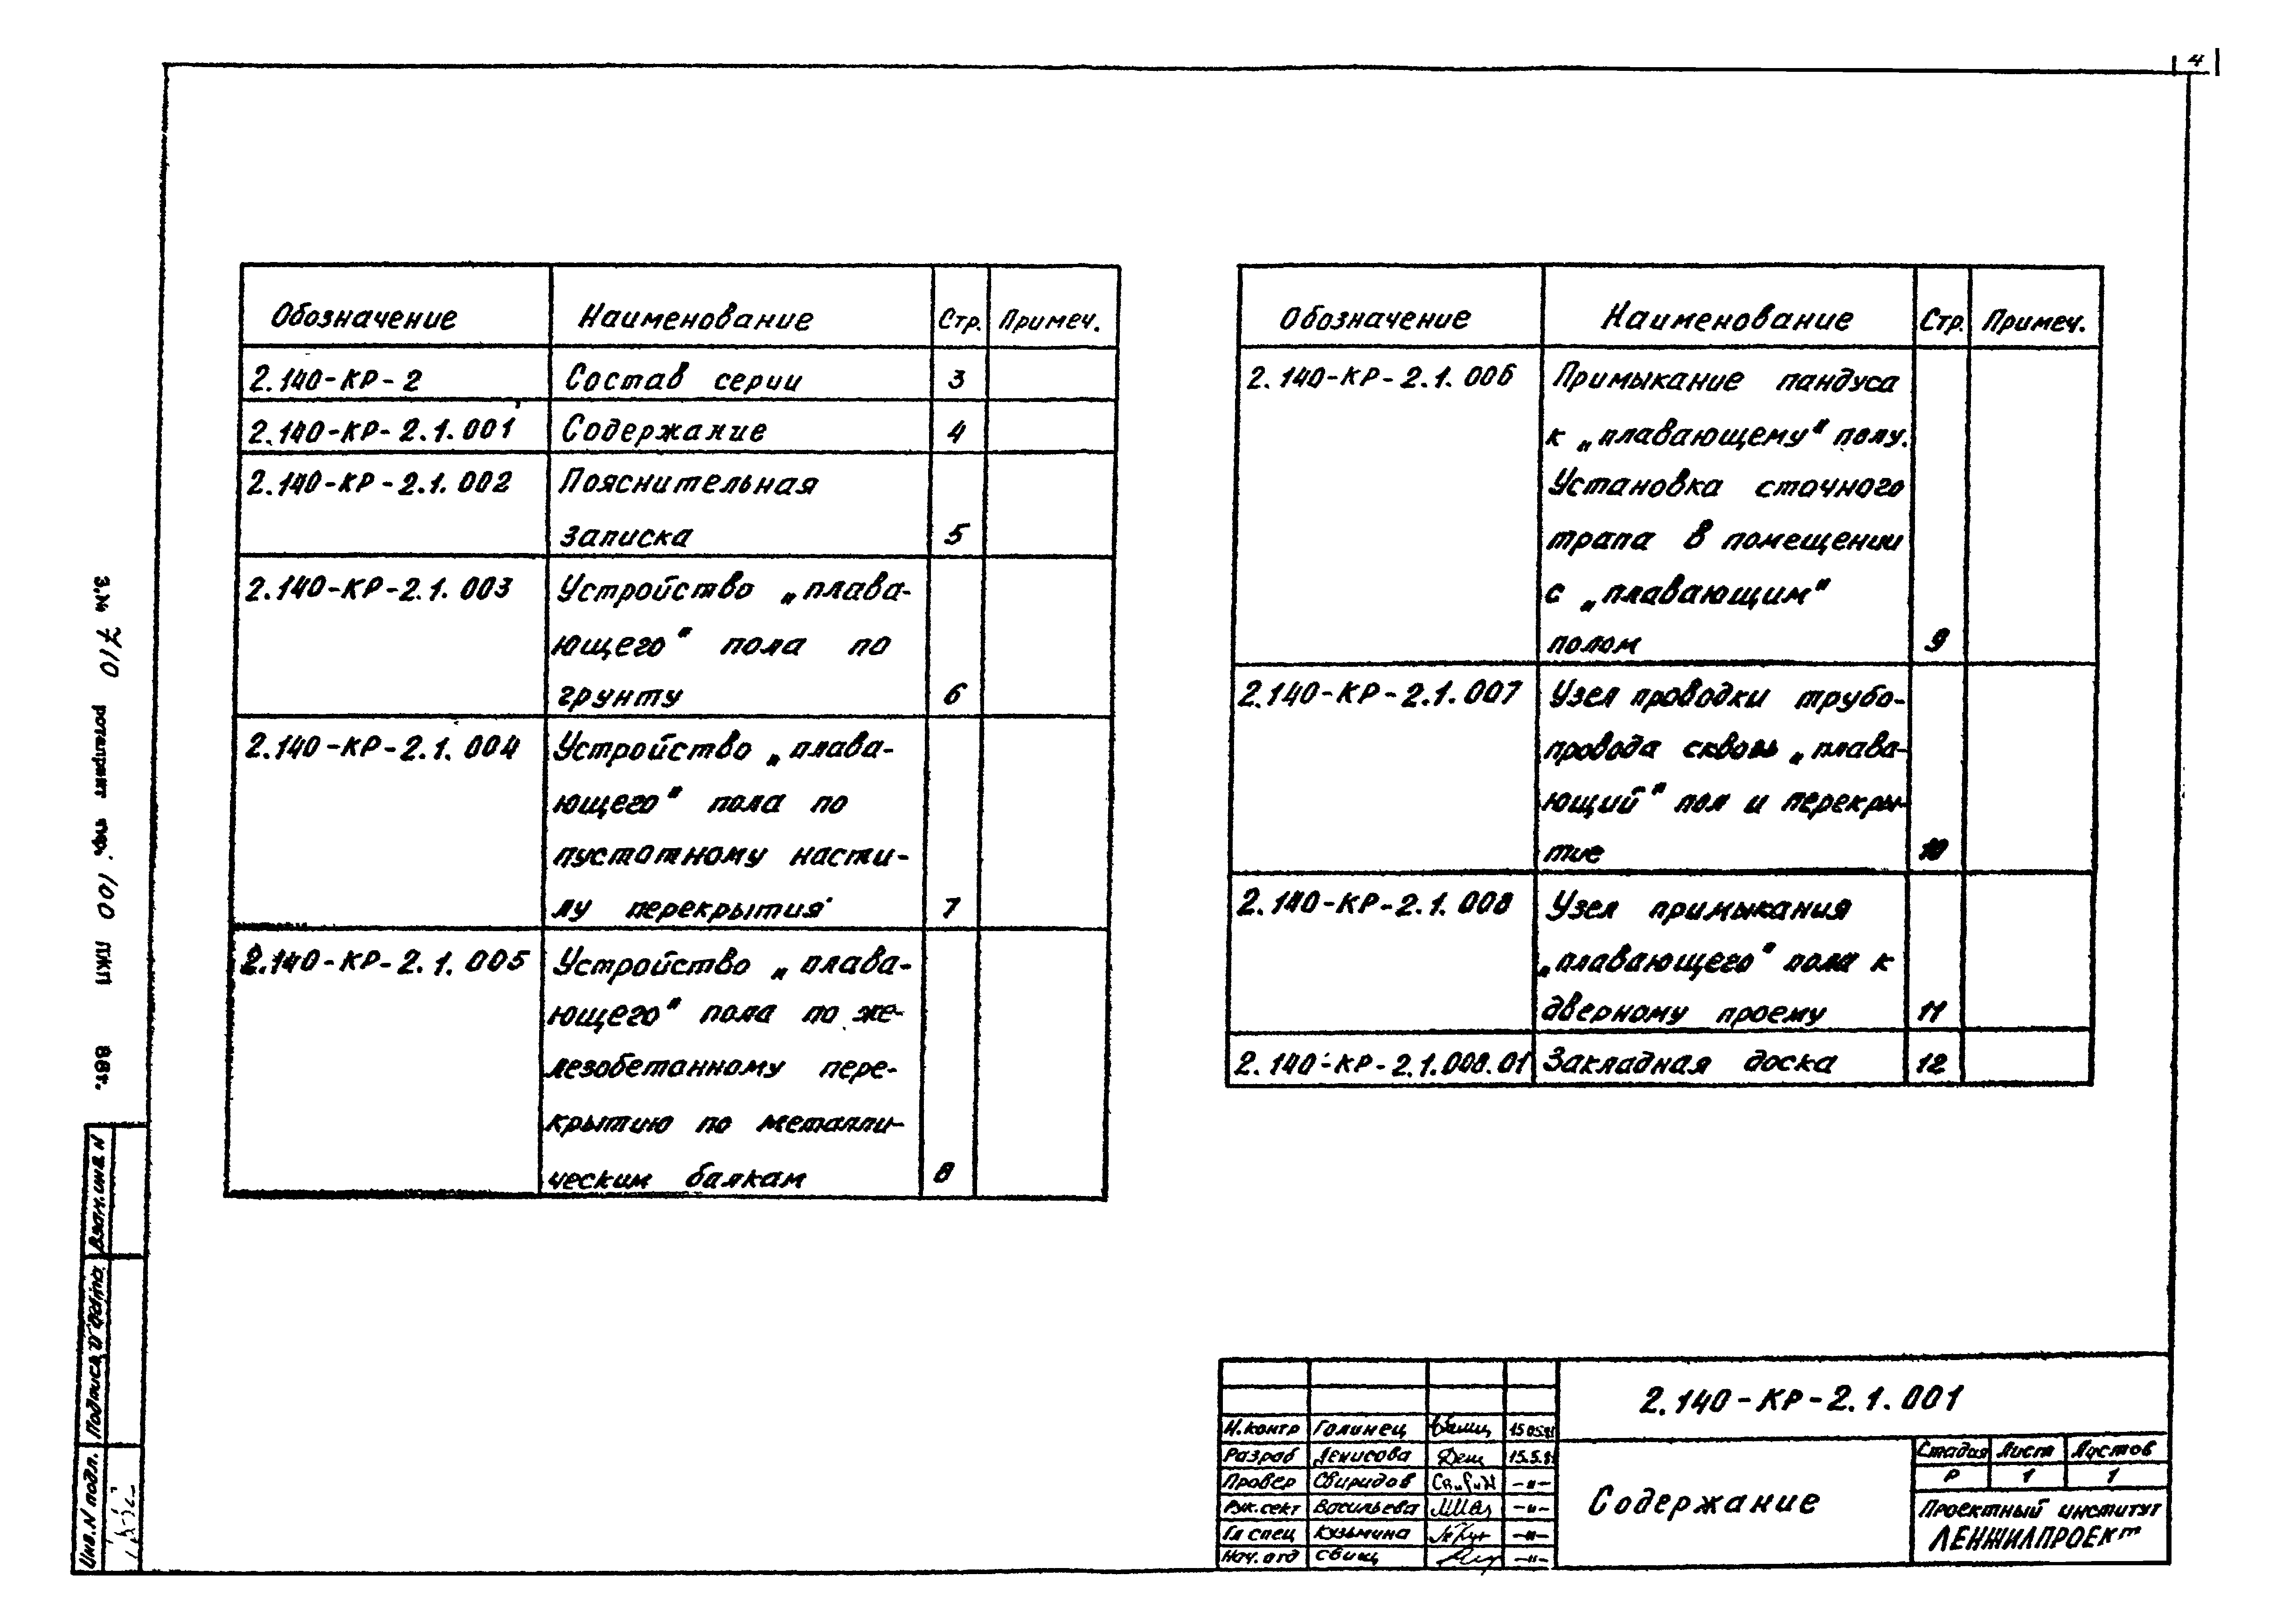 4
Обозначение Наименование Стр. Примеч.
2.140-КР-2 Состав серии 3
2.140-КР-2.1.001 Содержание 4
2.140-КР-2.1.002 Пояснительная
записка 5
2.140-КР-2.1.003 Устройство „плава-
ющего" пола по
грунту 6
2.140-КР-2.1.004 Устройство „плава-
ющего" пола по
пустотному насти-
лу перекрытия 7
2.140-КР-2.1.005 Устройство „плава-
ющего" пола по же-
лезобетонному пере-
крытию по металли-
ческим балкам 8
Обозначение Наименование Стр. Примеч.
2.140-КР-2.1.006 Примыкание пандуса
к „плавающему" полу.
Установка сточного
трапа в помещении
с „плавающим"
полом 9
2.140-КР-2.1.007 Узел проводки трубо-
провода сквозь „плава-
ющий" пол и перекры-
тие 10
2.140-КР-2.1.008 Узел примыкания
„плавающего" пола к
дверному проему 11
2.140-КР-2.1.008.01 Закладная доска 12
З.№ 710 ротапринт тир. 100 ПЖП 88г.
Взам.инв.N
Подпись и дата
Инв.N подл.
2.140-КР-2.1.001
Н.контр Голинец
Разраб Денисова
Провер Свиридов -"-
Рук.сект Васильева -"-
Гл спец Кузьмина -"-
Нач.отд Свищ -"-
Содержание
Стадия Лист Листов
Р 1 1
Проектный институт
ЛЕНЖИЛПРОЕКТ